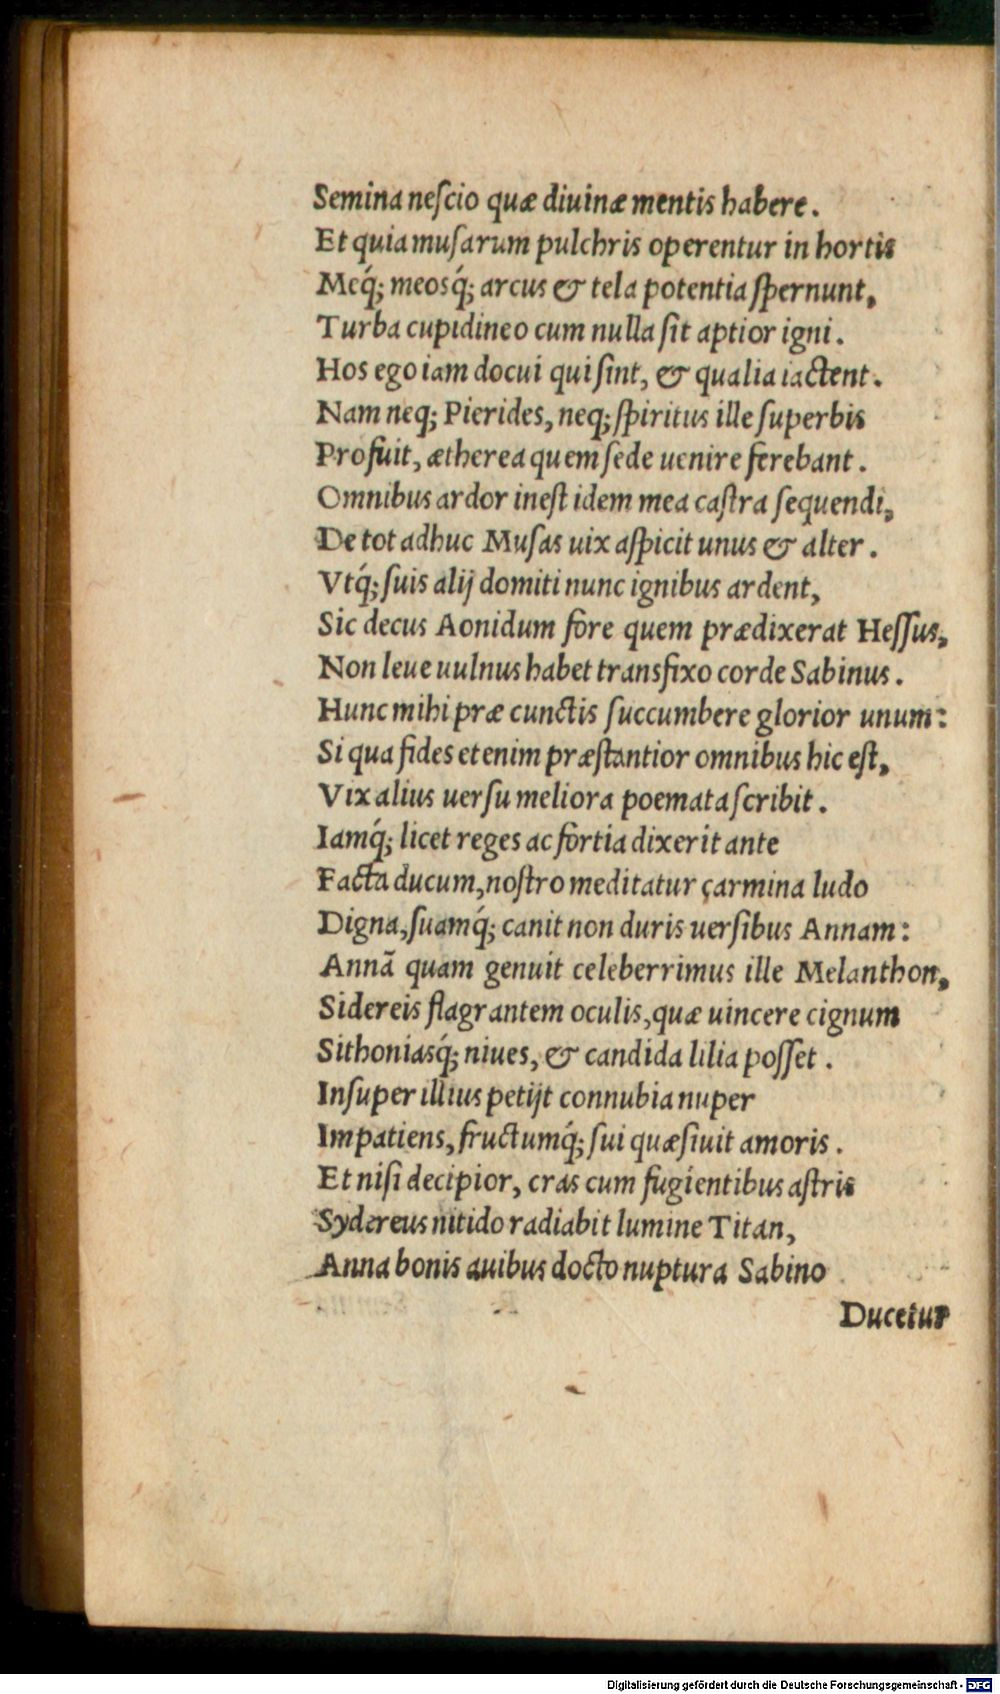 Semina neſcio quæ diuinæ mentis habere.
Et quia muſarum pulchris operentur in hortis
Meq́; meosq́; arcus & tela potentia ſpernunt,
Turba cupidineo cum nulla ſit aptior igni.
Hos ego iam docui qui ſint, & qualia iactent.
Nam neq; Pierides, neq; ſpiritus ille ſuperbis
Profuit, ætherea quem ſede uenire ferebant.
Omnibus ardor ineſt idem mea caſtra ſequendi,
De tot adhuc Muſas uix aſpicit unus & alter.
Vtq́; ſuis alij domiti nunc ignibus ardent,
Sic decus Aonidum fore quem prædixerat Heſſus,
Non leue uulnus habet transfixo corde Sabinus.
Hunc mihi præ cunctis ſuccumbere glorior unum:
Si qua fides etenim præſtantior omnibus hic eſt,
Vix alius uerſu meliora poemata ſcribit.
Iamq́; licet reges ac fortia dixerit ante
Facta ducum, noſtro meditatur çarmina ludo
Digna, ſuamq́; canit non duris uerſibus Annam:
Annã quam genuit celeberrimus ille Melanthon,
Sidereis flagrantem oculis, quæ uincere cignum
Sithoniasq́; niues, & candida lilia poſſet.
Inſuper illius petijt connubia nuper
Impatiens, fructumq́; ſui quæſiuit amoris.
Et niſi decipior, cras cum fugientibus aſtris
Sydereus nitido radiabit lumine Titan,
Anna bonis auibus docto nuptura Sabino
Ducetur
Digitalisierung gefördert durch die Deutsche Forschungsgemeinschaft - DFG